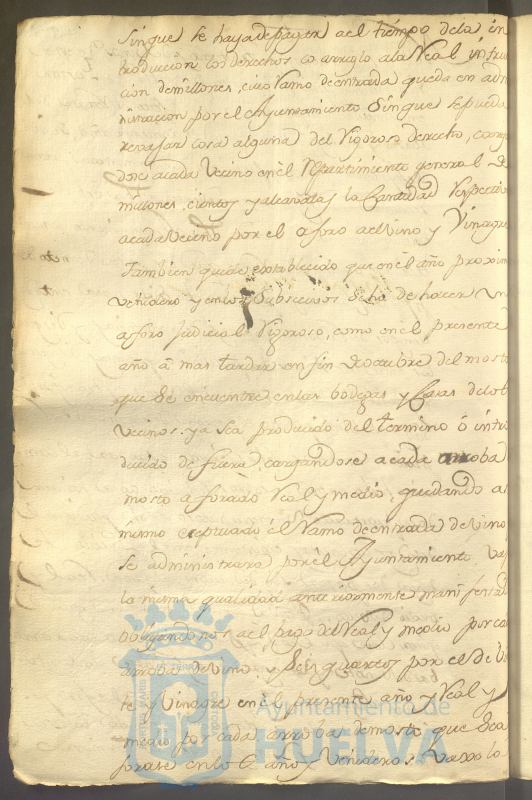 sin que se haya de pagar a el tiempo de la in
troduccion los derechos co arreglo a la Real instruc
cion de millones, cuio Ramo de entrada queda en admi
nistracion por el Ayuntamiento sin que se pueda
revajar cosa alguna del Vigoroso derecho, cargan
dose a cada Vecino en el Repartimiento general de
millones, cientos y alcavalas la Cantidad respectiva
a cada Vecino por el aforo de Vino y Vinagre
Tambien queda establecido que en el año proximo
venidero y en los subsecivos se ha de hacer un
aforo Judicial Vigoroso, como en el presente
año a mas tardar en fin de octubre del mosto
que se encuentre en las bodegas y Casas de los
Vecinos: ya sea producido del termino ó intro
ducido de fuera, cargandose a cada arroba
mosto aforado Real y medio, quedando a
mismo esceptuado el Ramo de entrada de vino
se administrara por el Ayuntamiento
la misma qualidad anteriormente manifestad
obligandonos a el pago del Real y medio por ca
arroba de vino y Seis quartos por el de
te y Vinagre en el presente año y Real y
medio por cada arroba de mosto que sea
forase en los años venideros vaxo la
Ayuntamiento de
HUELVA